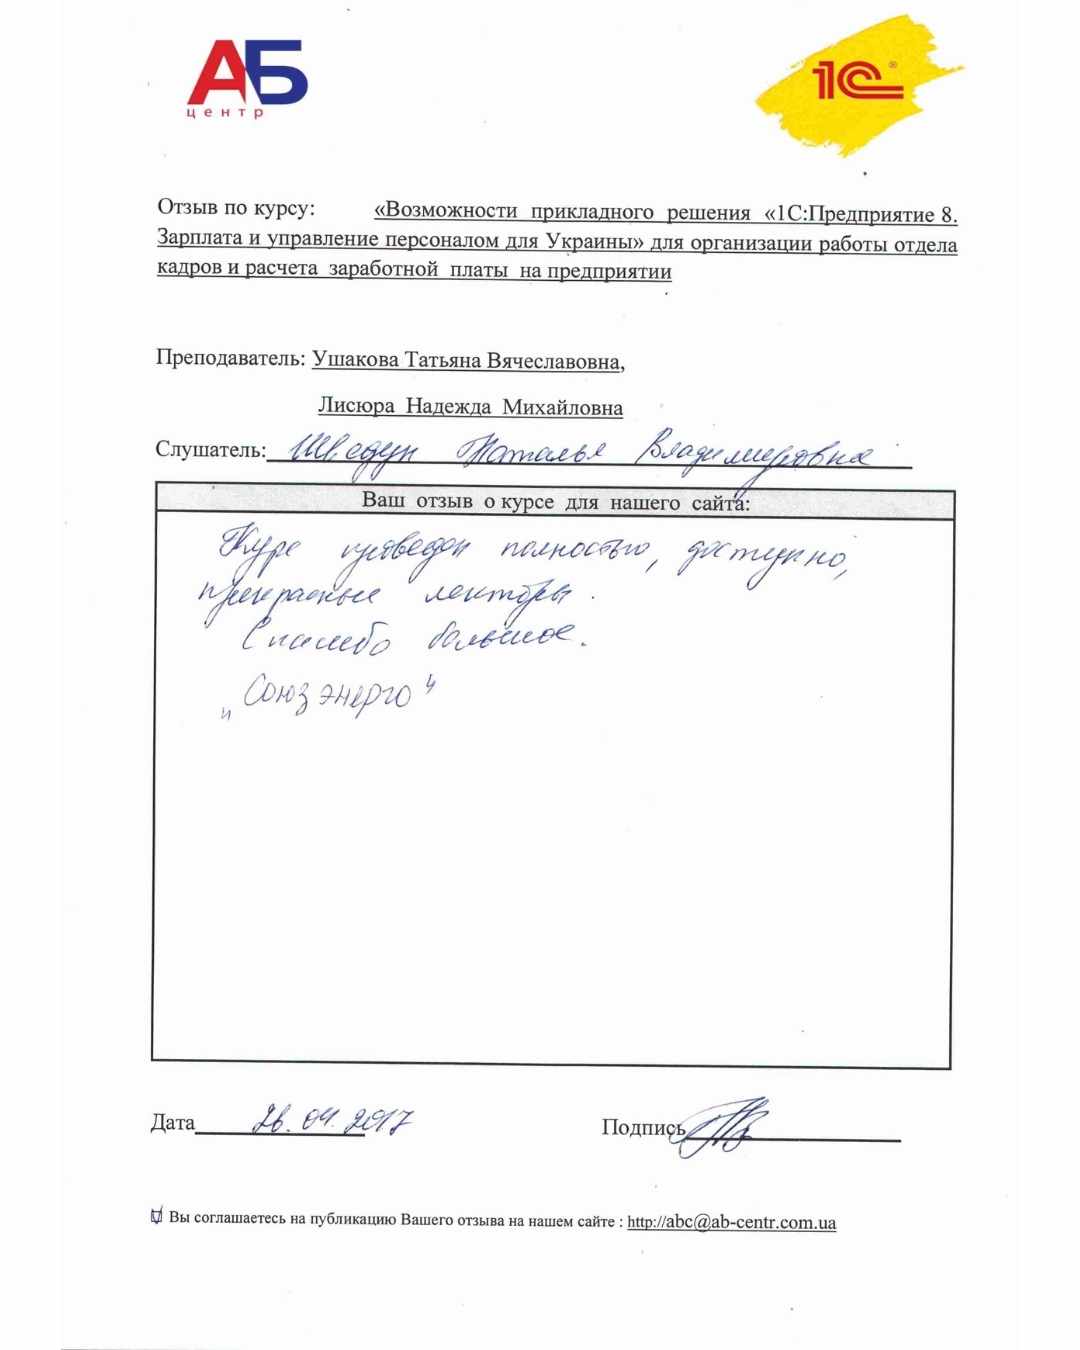 АБ
центр
1С®
Отзыв по курсу: «Возможности прикладного решения «1С:Предприятие 8.
Зарплата и управление персоналом для Украины» для организации работы отдела
кадров и расчета заработной платы на предприятии
Преподаватель: Ушакова Татьяна Вячеславовна,
Лисюра Надежда Михайловна
Слушатель: Шведун Наталья Владимировна
Ваш отзыв о курсе для нашего сайта:
Курс проведен полностью, доступно,
прекрасные лекторы.
Спасибо большое.
"Союзэнерго"
Дата 26.04.2017 Подпись
Вы соглашаетесь на публикацию Вашего отзыва на нашем сайте : http://abc@ab-centr.com.ua